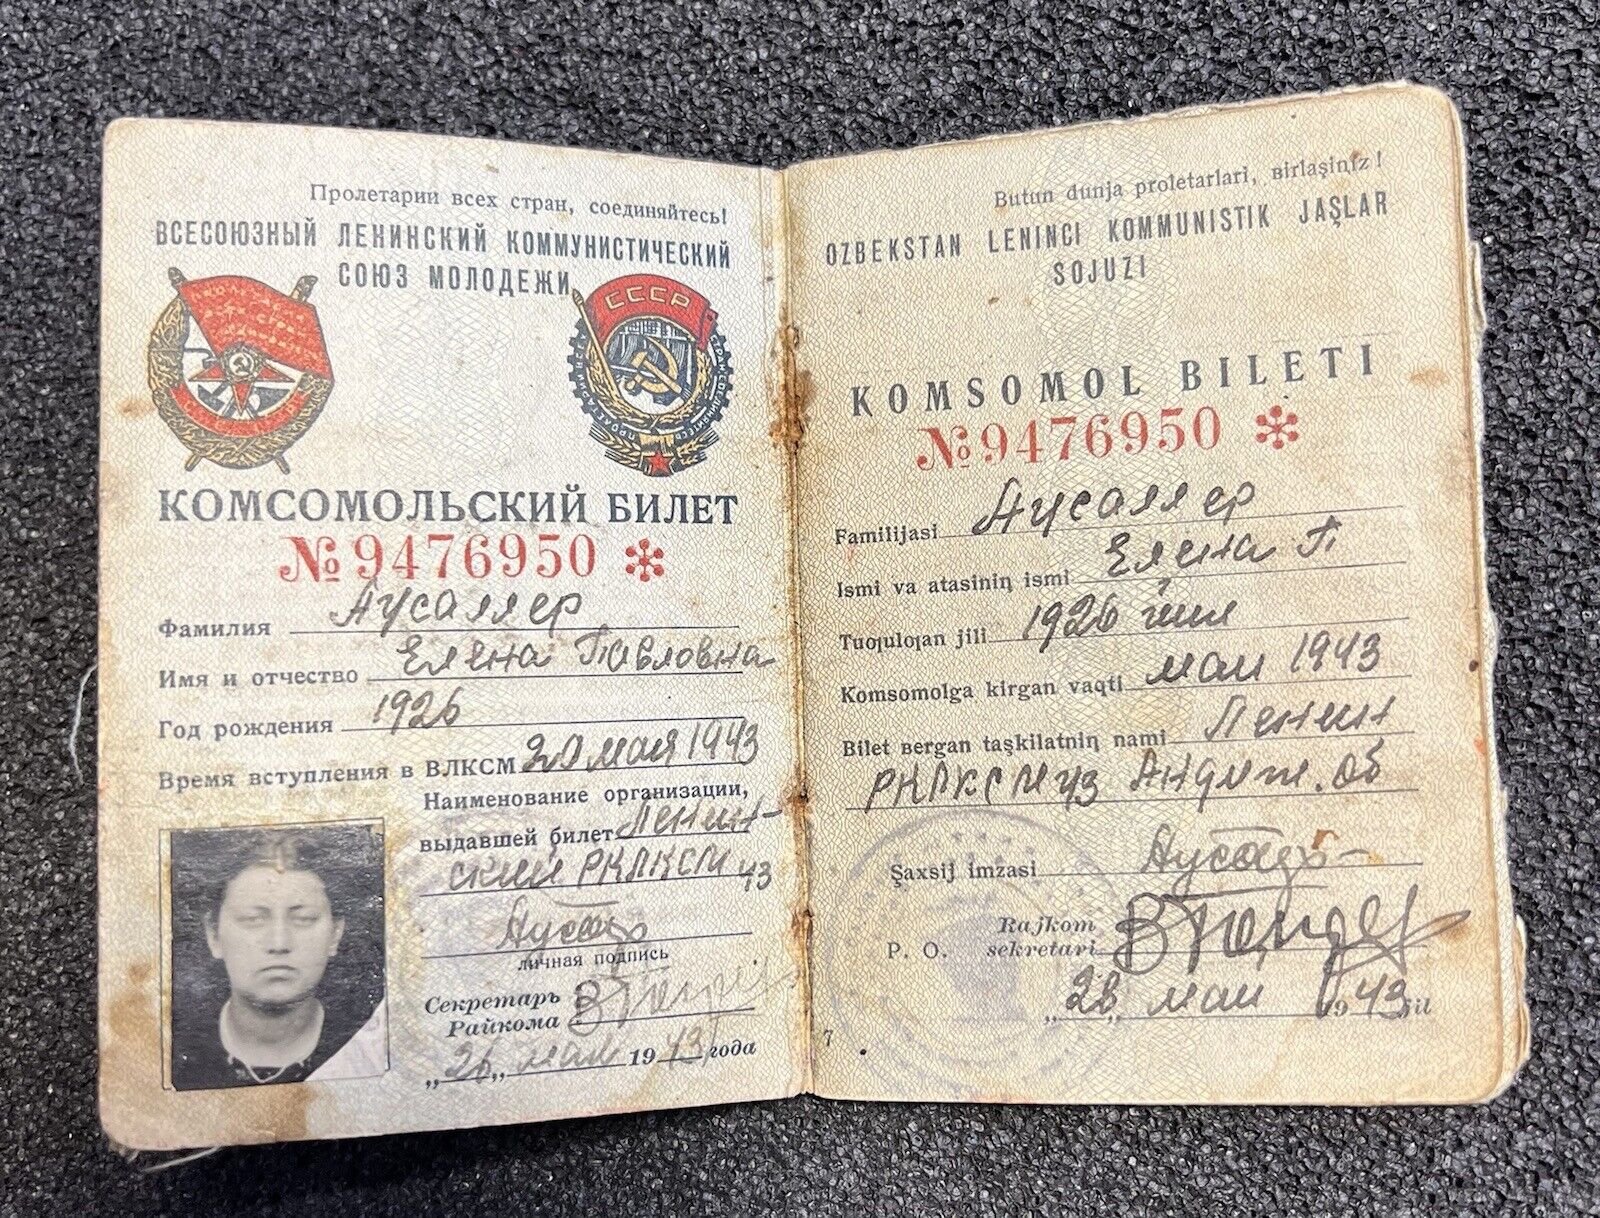 Пролетарии всех стран, соединяйтесь!
ВСЕСОЮЗНЫЙ ЛЕНИНСКИЙ КОММУНИСТИЧЕСКИЙ
СОЮЗ МОЛОДЕЖИ
СССР
КОМСОМОЛЬСКИЙ БИЛЕТ
№ 9476950 *
Фамилия Аусаляер
Имя и отчество Елена Павловна
Год рождения 1926
Время вступления в ВЛКСМ 20 мая 1943
Наименование организации,
выдавшей билет Ленин-
ский РКЛКСМ уз
личная подпись
Секретарь
Райкома
„26„ маи 1943 года
Butun dunja proletarlari, ʙirlaşiꞑiz!
OZBEKSTAN LENINCI KOMMUNISTIK JAŞLAR
SOJUZI
KOMSOMOL BILETI
№ 9476950 *
Familijasi Аусаляер
Ismi va atasiniꞑ ismi Елена П
Tuƣulƣan jili 1926 йил
Komsomolga kirgan vaqti маи 1943
Bilet ʙergan taşkilatniꞑ nami Ленин
РКЛКСМ уз Андиж. об
Şaxsij imzasi
Rajkom
P. O. sekretari
„28„ маи 1943 jil
7